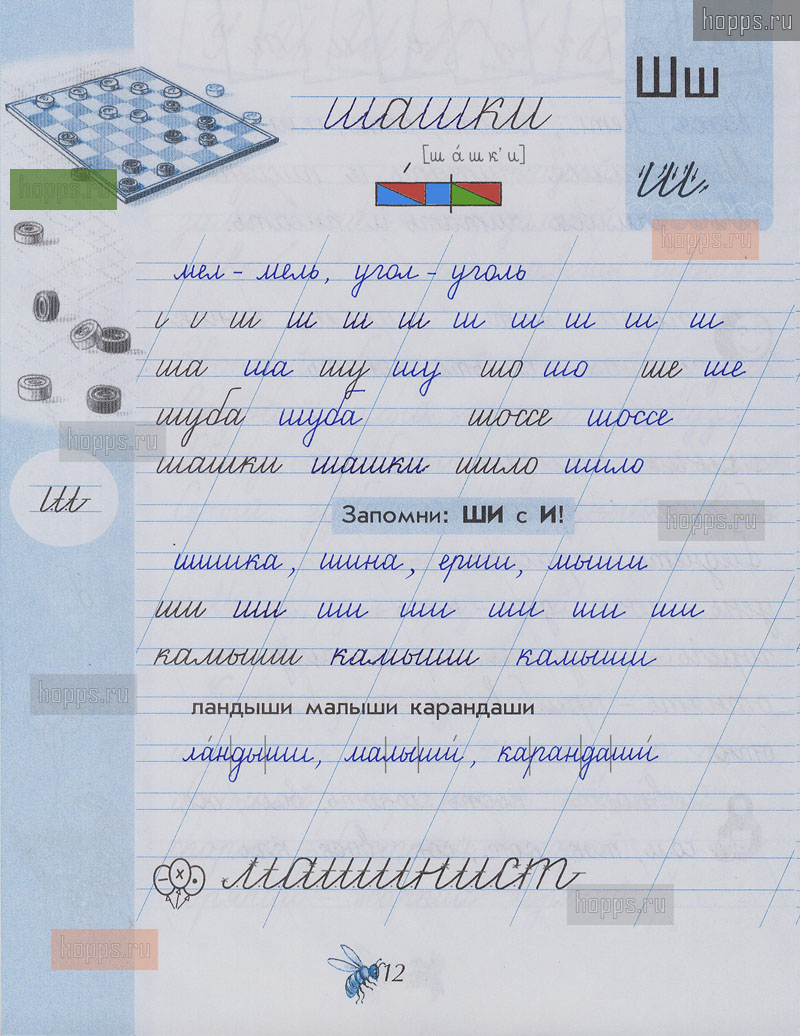 hopps.ru
Шш
шашки
[ша́шк'и]
ш
hopps.ru
hopps.ru
мел - мель, угол - уголь
ш ш ш ш ш ш ш ш ш
ша ша шу шу шо шо ше ше
шуба шуба шоссе шоссе
hopps.ru
шашки шашки шило шило
ш
Запомни: ШИ с И!
hopps.ru
шишка, шина, ерши, мыши
ши ши ши ши ши ши ши
камыши камыши камыши
hopps.ru
ландыши малыши карандаши
ла́ндыши, малыши́, карандаши́
машинист
hopps.ru
hopps.ru
12